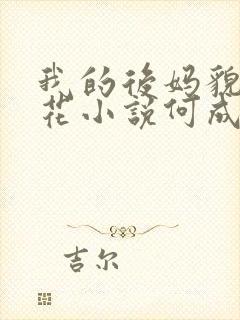 我的後妈貌
花小說何成
吉尔